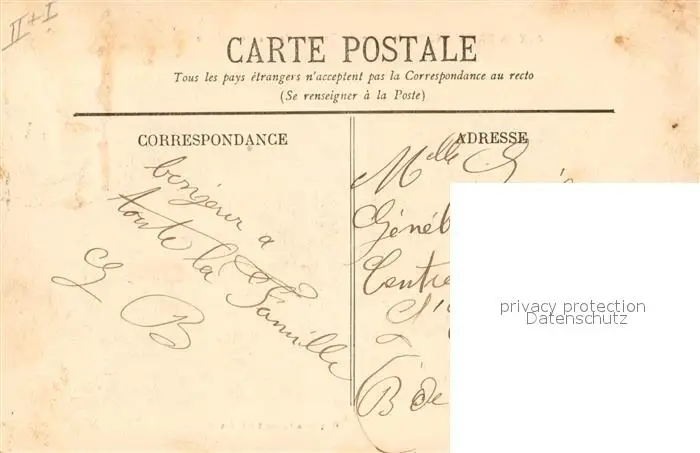 II+I
CARTE POSTALE
Tous les pays étrangers n'acceptent pas la Correspondance au recto
(Se renseigner à la Poste)
CORRESPONDANCE
bonjour a
toute la
Famille
G B
ADRESSE
Mlle G
Généb
Centre
B de
privacy protection
Datenschutz